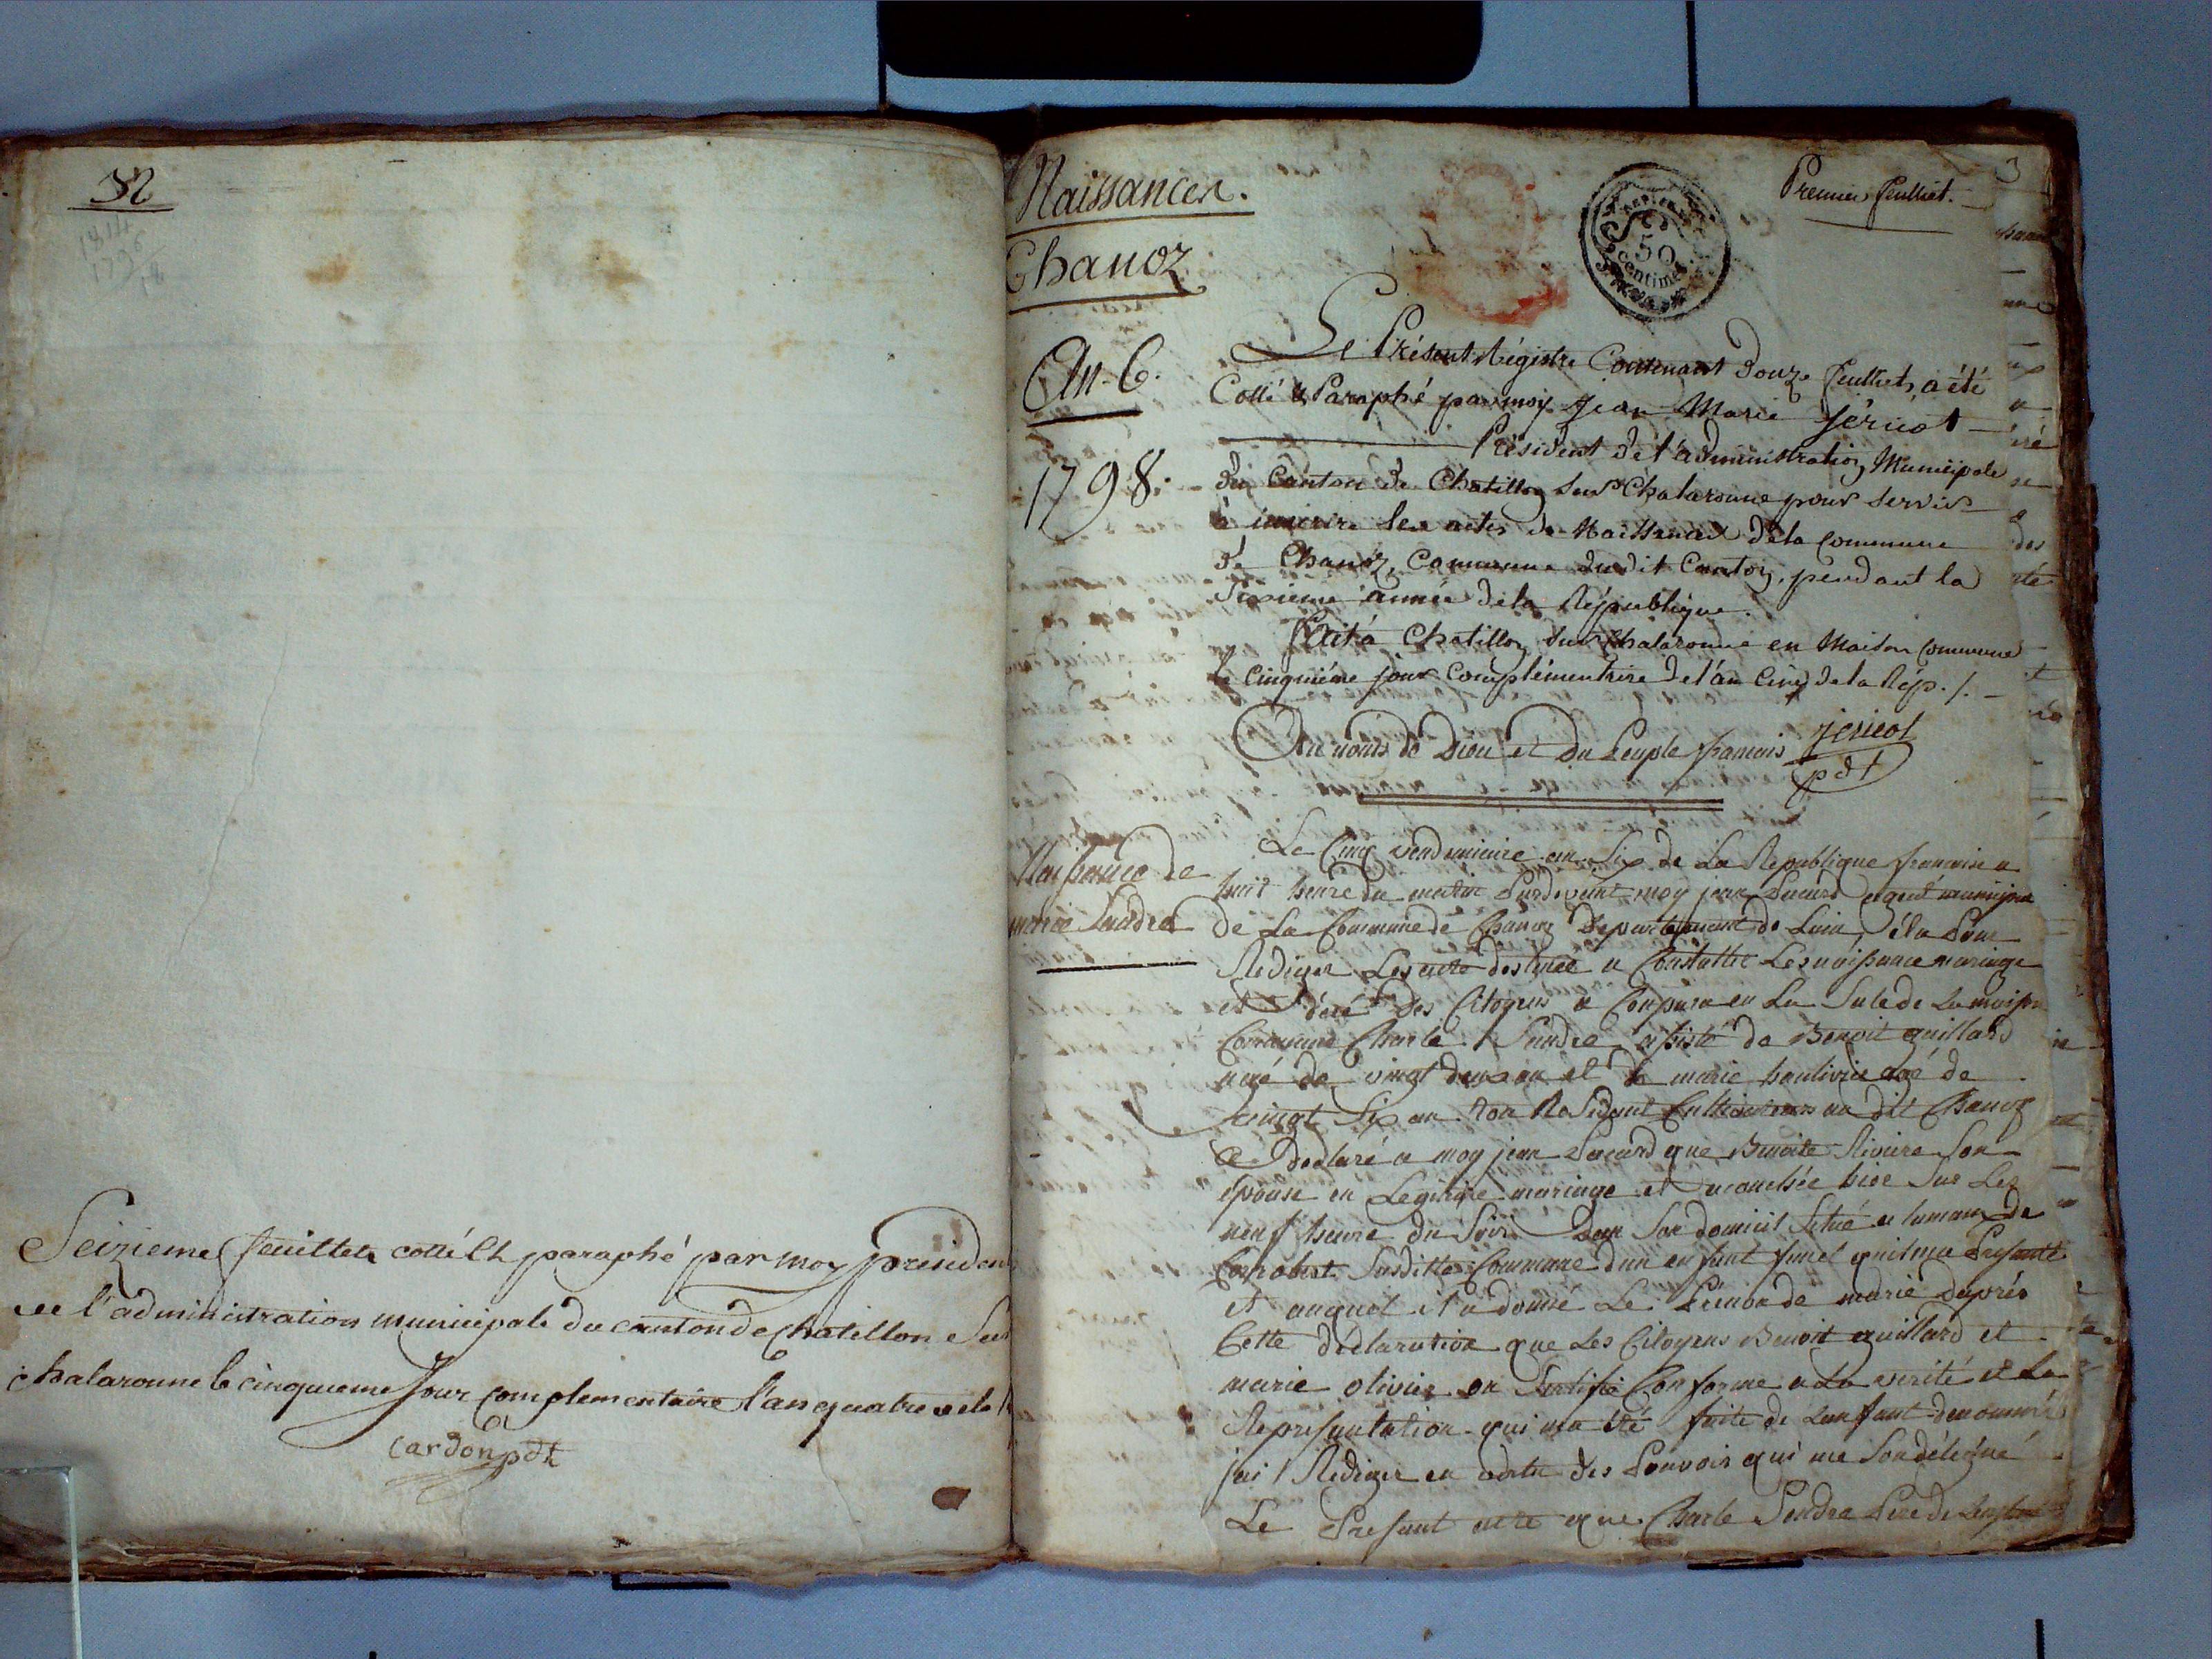 32
1814
1796
18
Seizieme feuillets cotté Et paraphé par moy president
de l'administration municipale du canton de chatillon Sur
chalaronne le cinquieme Jour complementaire l'an quatre de la
Cardon pdt
Naissances.
Chanoz
An. 6.
1798.
3
Premier feulliet.
50
centimes
Le Présent Régistre Contenant Douze feulliets, a été
Cotté & Paraphé par moy Jean Marie Jericot
Président de l'administration Municipale
du Canton de Chatillon sur Chalaronne pour servir
à inscrire les actes de Naissances de la Commune
de Chanoz, Commune dudit Canton, pendant la
Sixieme année de la République.
Fait à Chatillon sur Chalaronne en Maison Commune
le cinquième jour Complémentaire de l'an Cinq de la Rép. /.
Au noms de Dieu et du Peuple francais
jericot
pdt
Naissance de
marie
Le Cinq vendemiaire an Six de La Republique francaise a
huit heure du matin Pardevant moy jean agent municipal
de La Commune de Chanoz Departement de Lain, élu Pour
Rediger Les acte destinée a Constatter Les naissance mariage
et décé des Citoyens a Comparu en La Sale de La maison
Commune Charle assisté de Benoit quillard
agé de vingt deux an et de marie agé de
vingt Six an tou Residant Cultivateurs au dit Chanoz
a declaré a moy jean que Benoite Riviere Son
épouse en Legitime mariage et acouchée hiee Sur Les
neuf heure du Soir Dan Son domicil Situé a lamaux de
Susditte Commune dun enfant qui ma Presanté
et auquel il a donné Le Prénon de marie daprés
Cette déclaration que Les Citoyens Benoit quillard et
marie olivier on Sertifié Conforme a La verité et La
Represantation qui ma été faite de Lenfant denommé
jai Rediger en vertu des Pouvoir qui me Son délégué
Le Presant acte que Charle Pere de Lenfan